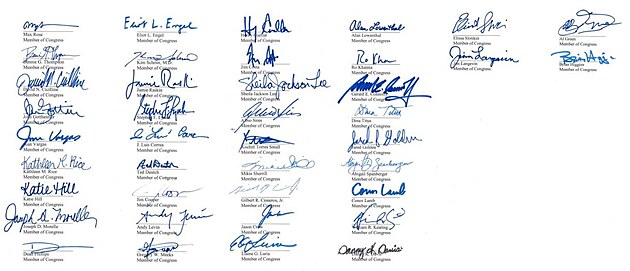 Max Rose
Member of Congress
Eliot L. Engel
Eliot L. Engel
Member of Congress
Member of Congress
Alan Lowenthal
Alan Lowenthal
Member of Congress
Elissa Slotkin
Member of Congress
Al Green
Member of Congress
Bennie G. Thompson
Member of Congress
Kim Schrier, M.D.
Member of Congress
Jim
Member of Congress
Ro Khanna
Ro Khanna
Member of Congress
Jim Langevin
Jim Langevin
Member of Congress
Brian Higgins
Member of Congress
David N. Cicilline
Member of Congress
Jamie Raskin
Jamie Raskin
Member of Congress
Sheila Jackson Lee
Sheila Jackson Lee
Member of Congress
Gerald E. Connolly
Member of Congress
Josh Gottheimer
Member of Congress
Stephen F. Lynch
Member of Congress
Albio Sires
Albio Sires
Member of Congress
Dina Titus
Dina Titus
Member of Congress
Juan Vargas
Juan Vargas
Member of Congress
J. Luis Correa
Member of Congress
Xochitl Torres Small
Member of Congress
Jared F. Golden
Jared Golden
Member of Congress
Kathleen M. Rice
Kathleen M. Rice
Member of Congress
Ted Deutch
Ted Deutch
Member of Congress
Mikie Sherrill
Mikie Sherrill
Member of Congress
Abigail Spanberger
Member of Congress
Katie Hill
Katie Hill
Member of Congress
Jim Cooper
Member of Congress
Gilbert R. Cisneros, Jr.
Member of Congress
Conor Lamb
Conor Lamb
Member of Congress
Joseph D. Morelle
Joseph D. Morelle
Member of Congress
Andy Levin
Andy Levin
Member of Congress
Jason Crow
Member of Congress
William R. Keating
Member of Congress
Dean Phillips
Member of Congress
Gregory W. Meeks
Member of Congress
Elaine G. Luria
Member of Congress
Danny K. Davis
Member of Congress